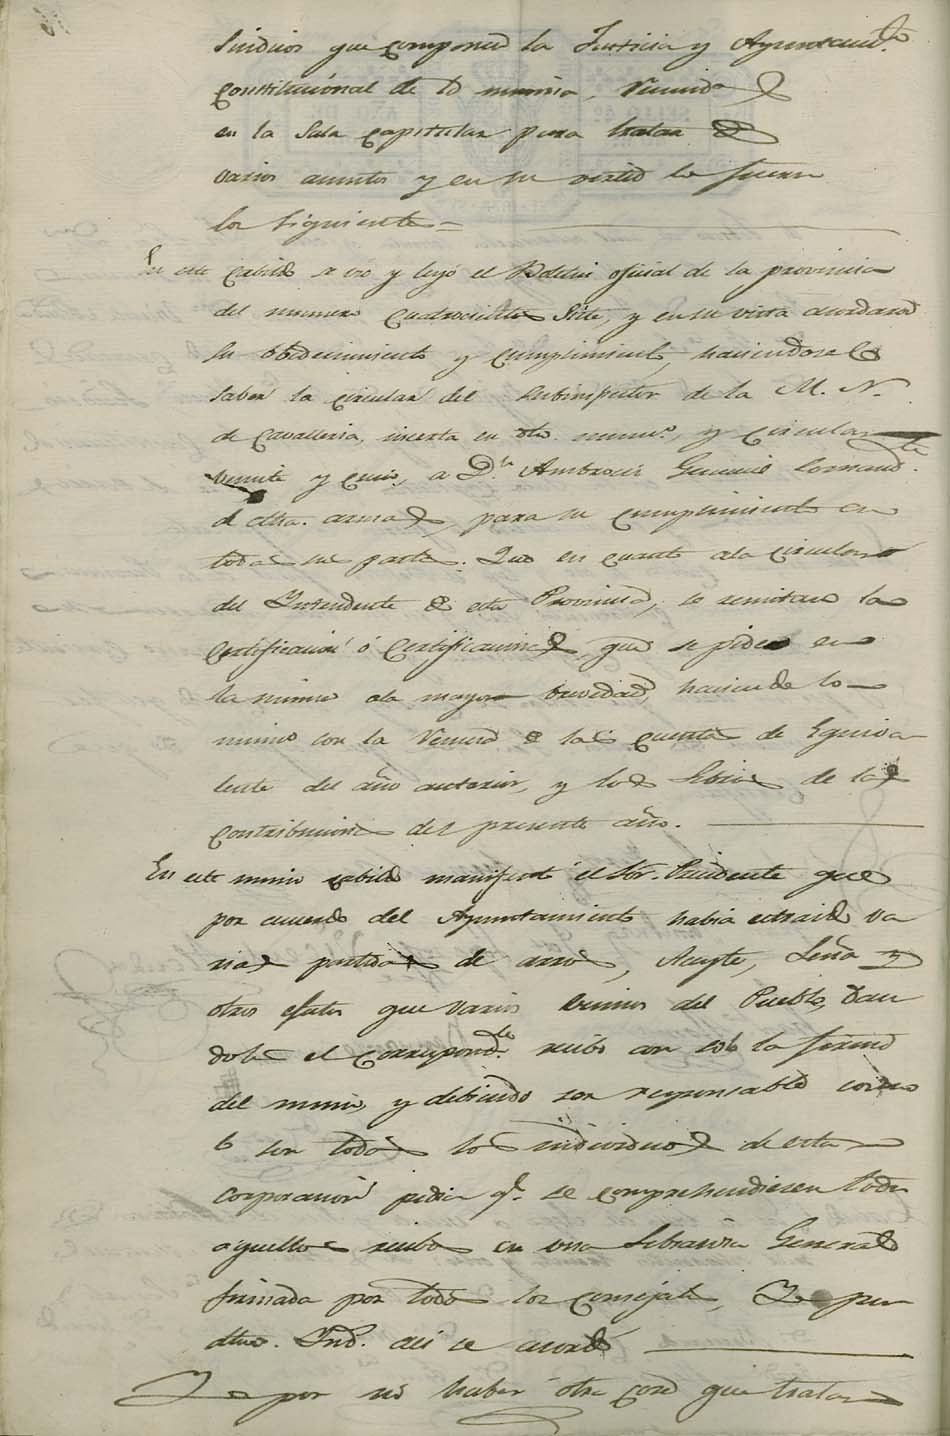 Sindicos que componen la Justicia y Ayuntami.to
Constitucional de la misma, reunida
en la Sala capitular para tratar de
varios asuntos y en su virtud lo fueron
los siguientes =
En este cabildo se vio y leyó el Boletin oficial de la provincia
del numero cuatrocientos siete, y en su vista acordaron
su obedecimiento y cumplimiento, haciendose
saber la circular del subinspector de la M. N.
de Cavalleria, inserta en dho. num.o, y circular
veinte y cinco, a D.n Ambrosio Comand.te
de dha. arma, para su cumplimiento en
todas sus partes. Que en cuanto a la circular
del Intendente de esta Provincia, se remitan la
certificacion ó certificaciones que se piden en
la misma a la mayor brevedad, haciendo lo
mismo con la de las cuentas de Equiva-
lente del año anterior, y los Libros de las
contribuciones del presente año.
En este mismo cabildo manifestó el Sor. Presidente que
por acuerdo del Ayuntamiento habia extraido va
rias partidas de arros, Aceyte, Leña y
otros efectos que varios vecinos del Pueblo, dan
doles el correspond.te recibo con solo la firma
del mismo y debiendo ser responsables como
lo son todos los individuos de esta
corporacion pedia q.e se comprehendiesen todos
aquellos recibos en una Libranza General
firmada por todos los consejales, Y por
dhos. Ind. asi se acordó
Y por no haber otra cosa que tratar